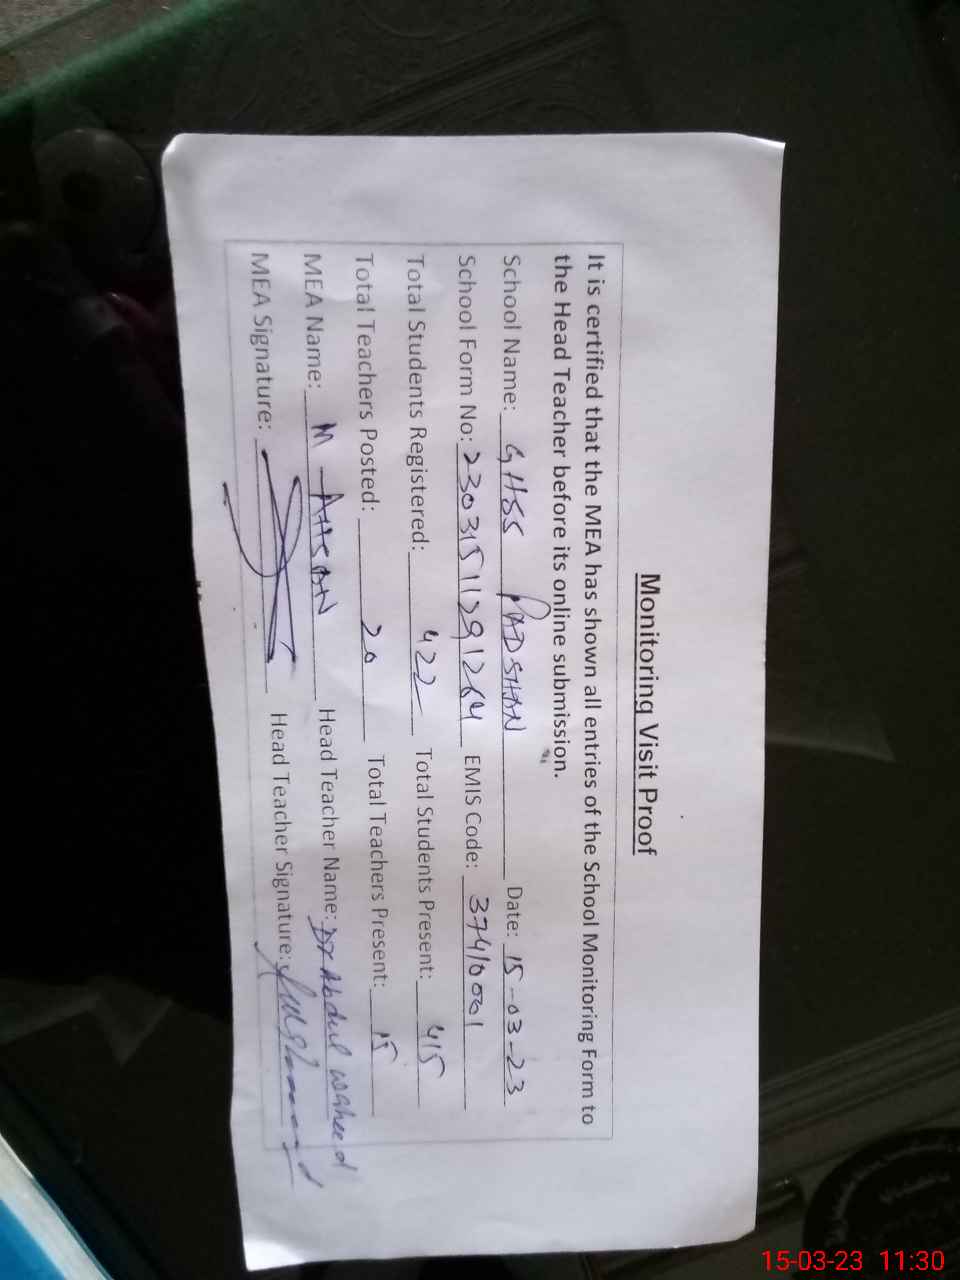 Monitoring Visit Proof
It is certified that the MEA has shown all entries of the School Monitoring Form to
the Head Teacher before its online submission.
School Name: GHSS PADSHAN Date: 15-03-23
School Form No: 23031511291264 EMIS Code: 37410001
Total Students Registered: 422 Total Students Present: 415
Total Teachers Posted: 20 Total Teachers Present: 15
MEA Name: M AHSAN Head Teacher Name: Dr Abdul waheed
MEA Signature: Head Teacher Signature:
15-03-23 11:30